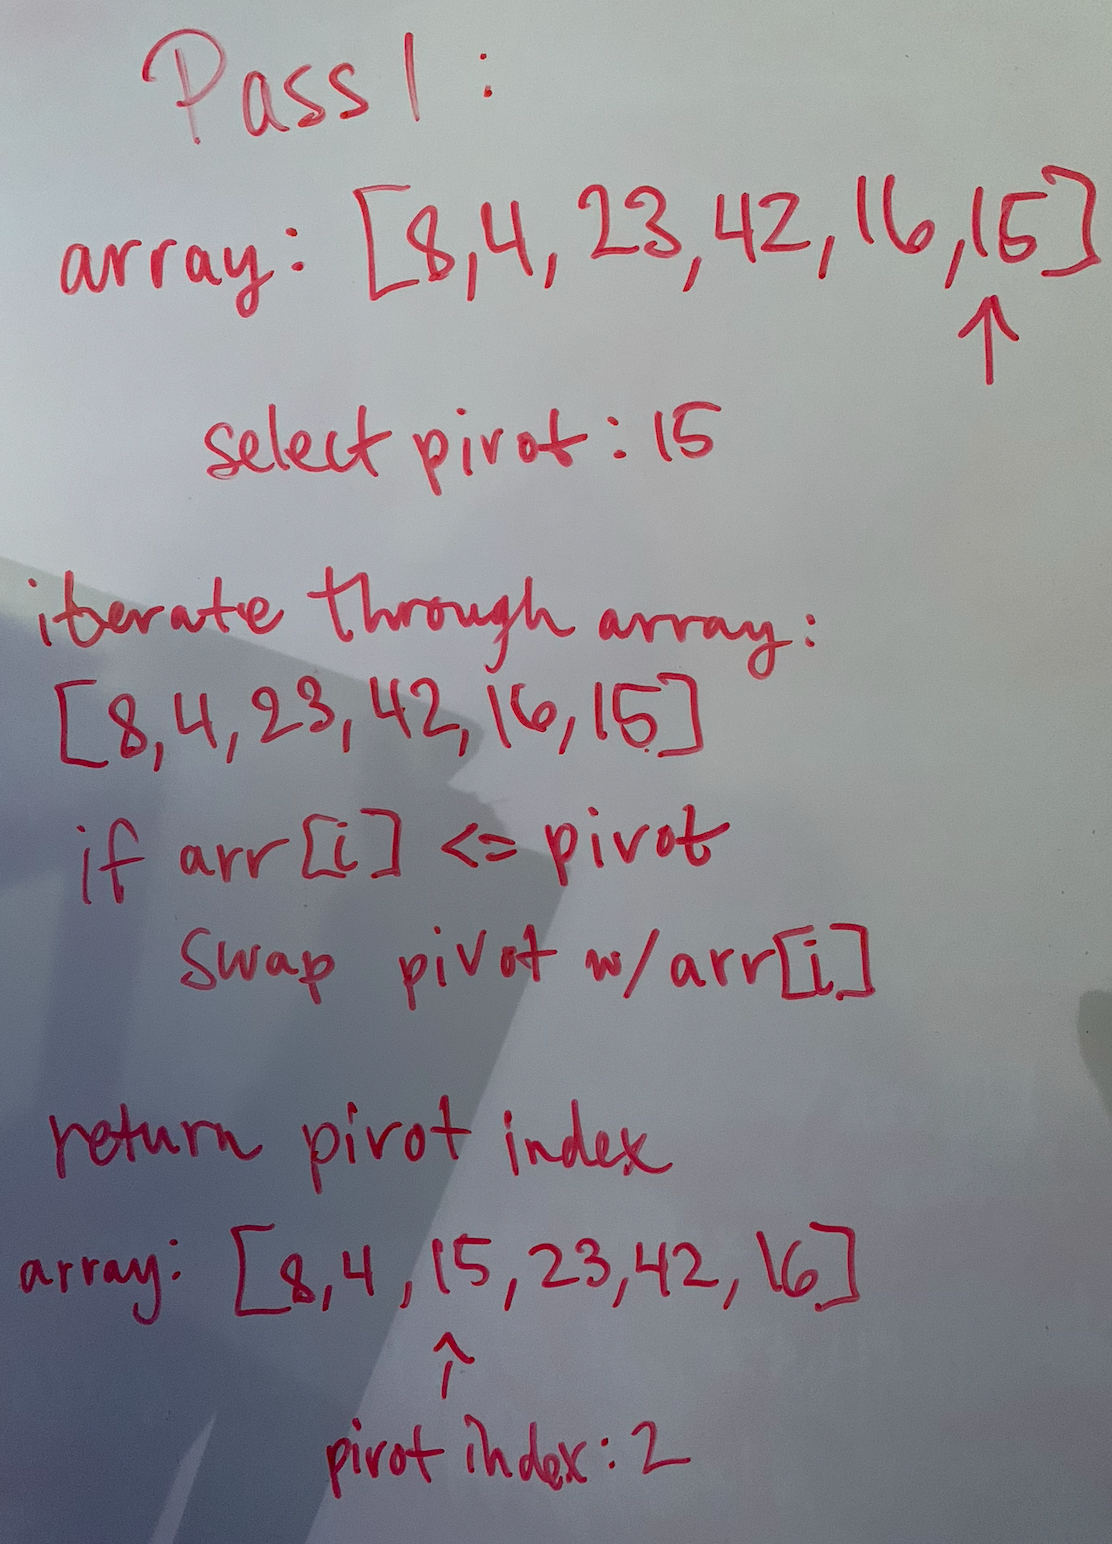 Pass 1:
array: [8,4, 23, 42, 16, 15]
↑
select pivot: 15
iterate through array:
[8, 4, 23, 42, 16, 15]
if arr[i] <= pivot
swap pivot w/ arr[i]
return pivot index
array: [8,4, 15, 23, 42, 16]
↑
pivot index: 2